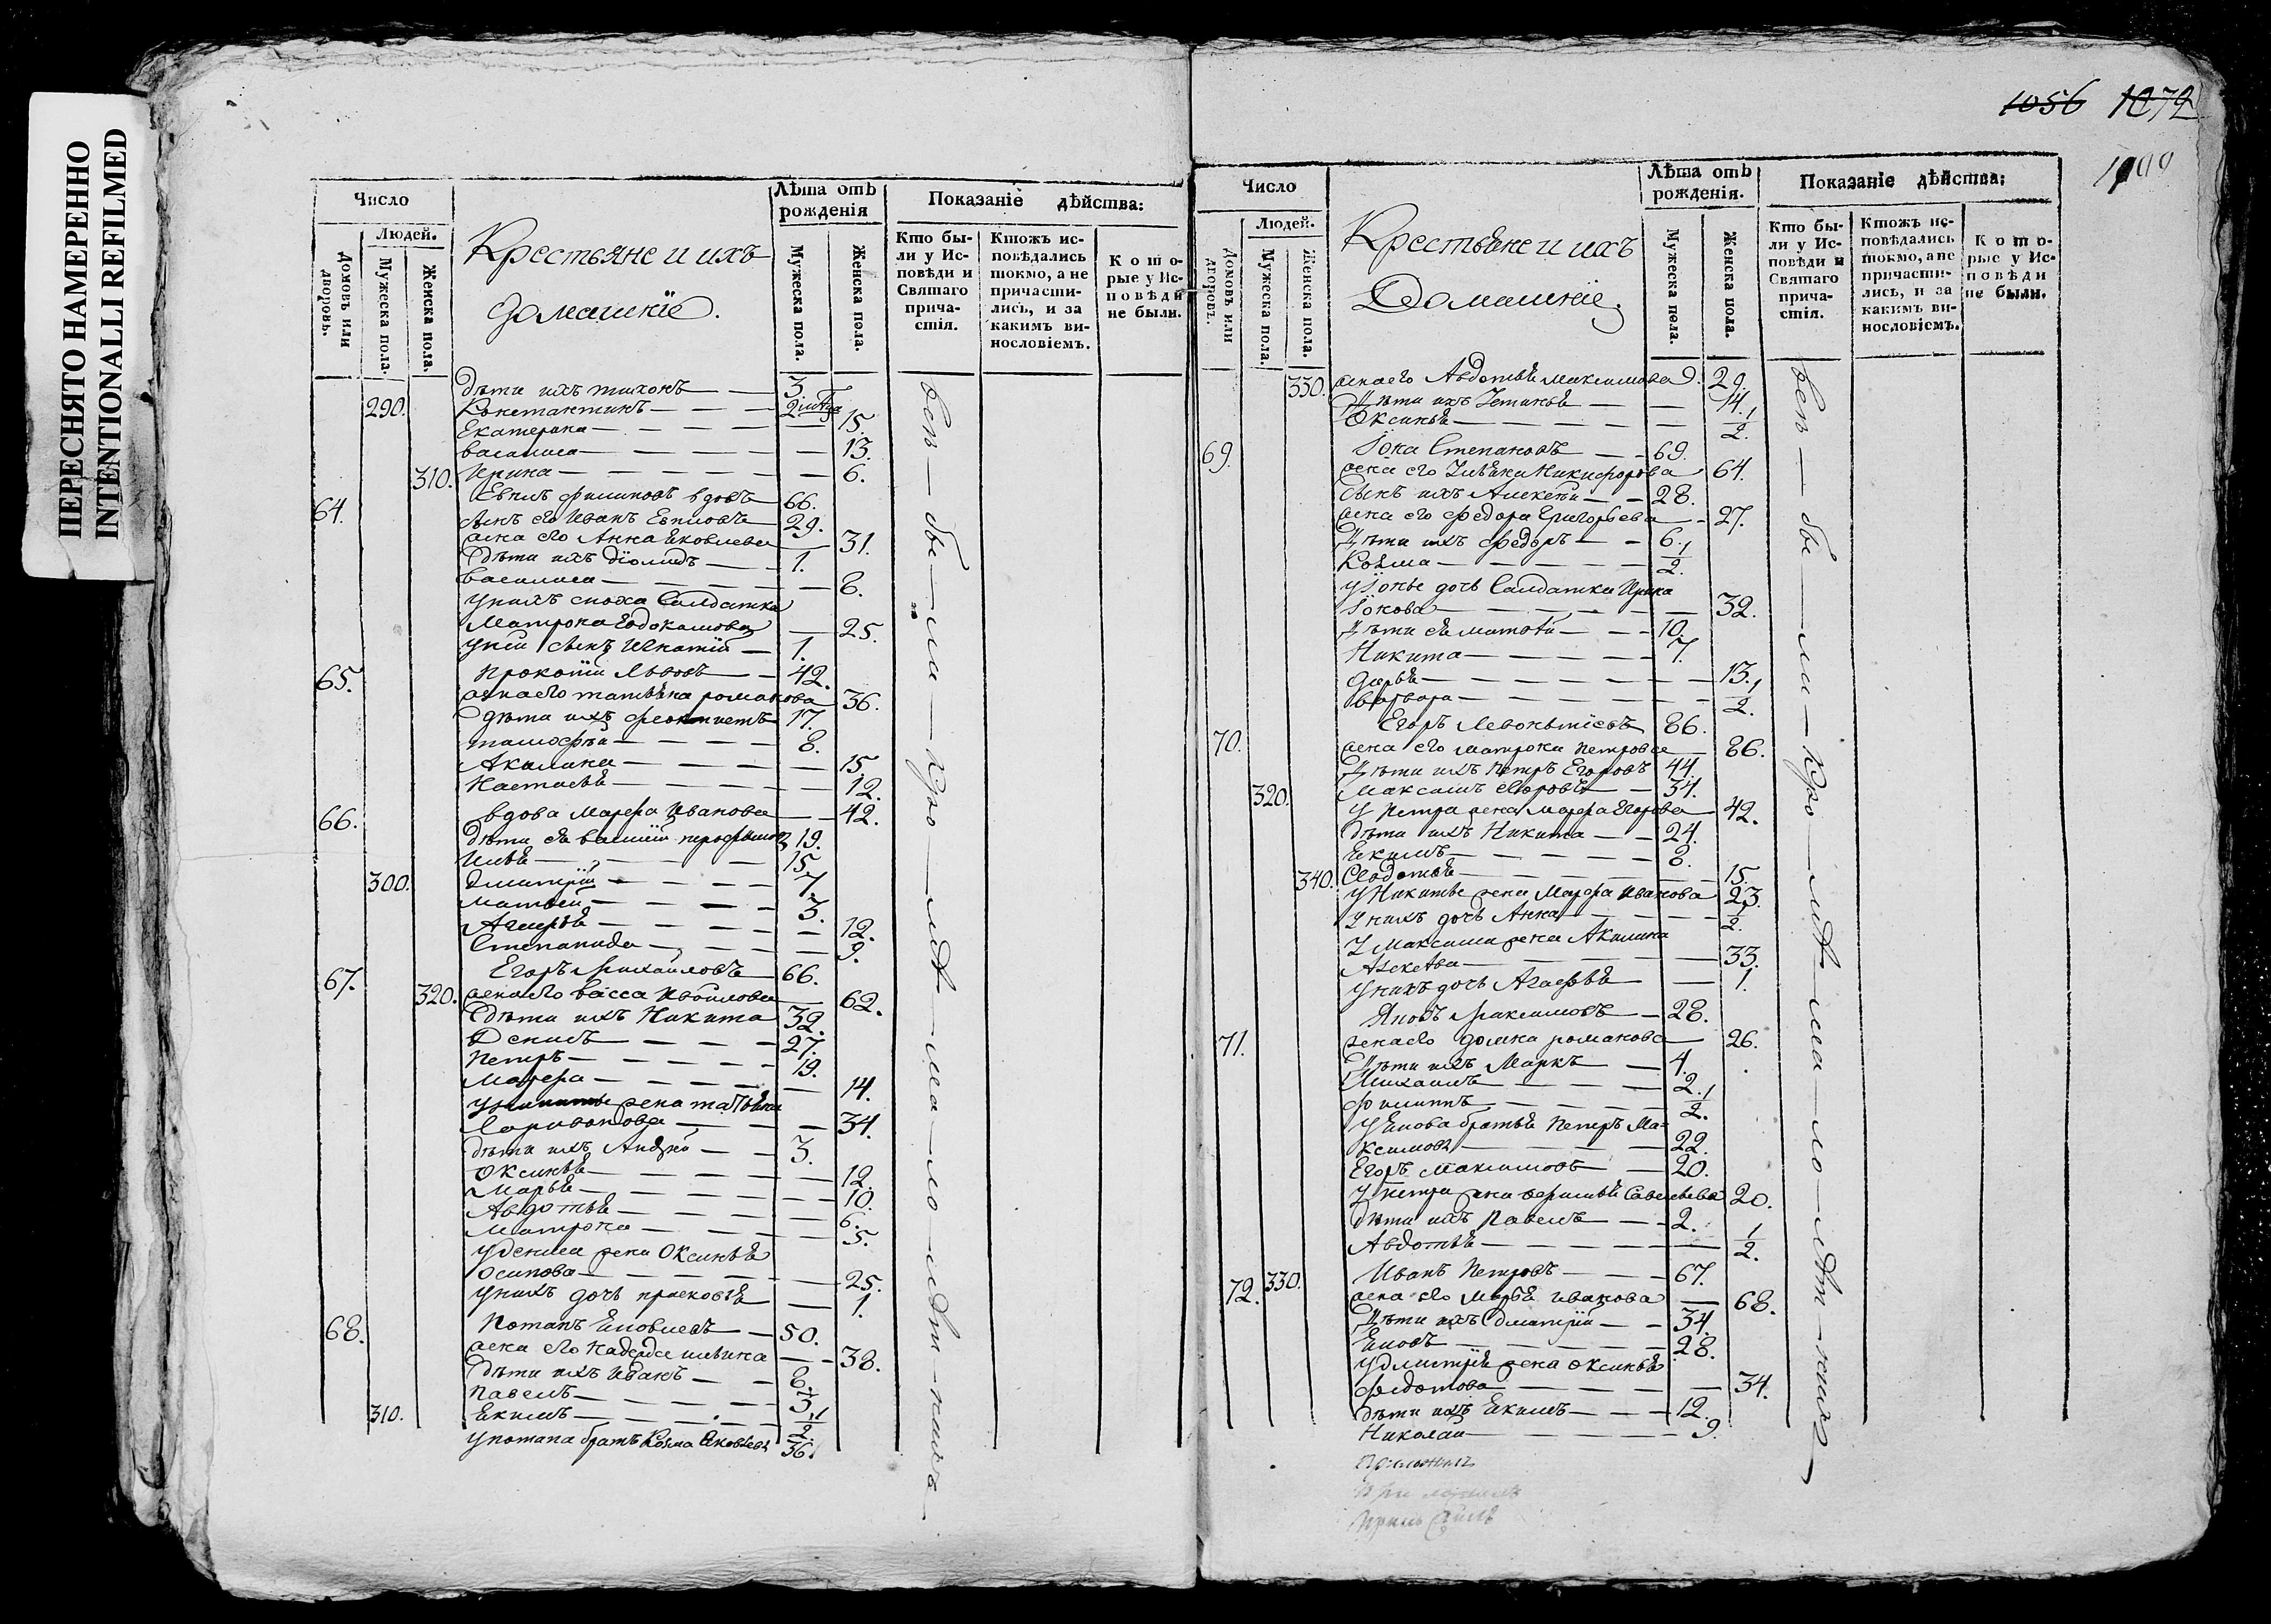 ПЕРЕСНЯТО НАМЕРЕННО
INTENTIONALLI REFILMED
Число
Людей.
Домовъ или дворовъ.
Мужеска пола.
Женска пола.
Крестьяне и ихъ
домашніе.
Лѣта отъ рожденія
Мужеска пола.
Женска пола.
Показаніе дѣйства:
Кто бы-
ли у Ис-
повѣди и
Святаго
прича-
стія.
Ктожъ ис-
повѣдались
токмо, а не
причасти-
лись, и за
какимъ ви-
нословіемъ.
Кото-
рые у Ис-
повѣди
не были.
дѣти ихъ тихонъ 3
290. Констактинъ 2
Екатерина 15.
василиса 13.
310. Ирина 6.
64. Евпилъ филиповъ вдовъ 66.
сынъ его Иванъ Евпловъ 29.
жена его Анна Яковлева 31.
дѣти ихъ діомидъ 1.
василиса 8.
у нихъ сноха Салдатка
Матрона Евдокимова 25.
у ней сынъ Игнатій 1.
65. Прокопій Львовъ 42.
жена его татьяна романова 36.
дѣти ихъ феоктистъ 17.
тимофѣй 8.
Акилина 15
Настасья 12.
66. вдова Марфа Иванова 42.
дѣти ея 19.
Илья 15
300. Дмитрій 7.
Матвей 3.
Агафья 12.
Степанида 9.
67. Егоръ Михайловъ 66.
320. жена его васса 62.
дѣти ихъ Никита 32.
Денисъ 27.
Петръ 19.
Марфа 14.
у никиты жена татьяна
34.
дѣти ихъ Андрей 3.
Оксинья 12.
Марья 10.
Авдотья 6.
Матрона 5.
у дениса жена Оксинья
Осипова 25.
у нихъ дочь прасковья 1.
68. Потапъ Яковлевъ 50.
жена его надежда ильина 38.
дѣти ихъ Иванъ 8.
Павелъ 3
310. Екимъ 1/2.
у потапа братъ Козма Яковлевъ 36.
всѣ — бы — ли
1056 1072
Число
Людей.
Домовъ или дворовъ.
Мужеска пола.
Женска пола.
Крестьяне и ихъ
Домашніе.
Лѣта отъ рожденія.
Мужеска пола.
Женска пола.
Показаніе дѣйства:
Кто бы-
ли у Ис-
повѣди и
Святаго
прича-
стія.
Ктожъ ис-
повѣдались
токмо, а не
причасти-
лись, и за
какимъ ви-
нословіемъ.
Кото-
рые у Ис-
повѣди
не были.
330. жена его Авдотья Максимова 29.
Дѣти ихъ 14.
Оксинья 1/2.
69. Іона Степановъ 69.
жена его Ульяна Никифорова 64.
Сынъ ихъ Алексѣй 28.
жена его федора Григорьева 27.
Дѣти ихъ федоръ 6.
Козма 1/2.
у Іоны дочь Салдатка Ирина
Іонова 32.
Дѣти ея матвѣй 10.
Никита 7.
дарья 13.
варвара 1/2.
70. Егоръ Леоньтіевъ 86.
жена его матрона петрова 86.
Дѣти ихъ Петръ Егоровъ 44.
320. Максимъ Егоровъ 34.
У Петра жена Марфа Егорова 42.
дѣти ихъ Никита 24.
Екимъ 8.
340. Авдотья 15.
У Никиты жена Марфа Иванова 23.
У нихъ дочь Анна 1/2.
У Максима жена Акилина
33.
У нихъ дочь Агафья 1.
71. Яковъ Максимовъ 28.
жена его домна романова 26.
Дѣти ихъ Маркъ 4.
Михаилъ 2.
филиппъ 1/2.
У Якова братья Петръ Ма-
ксимовъ 22.
Егоръ максимовъ 20.
У петра жена Савельева 20.
дѣти ихъ Павелъ 2.
Авдотья 1/2
72. 330. Иванъ Петровъ 67.
жена его Марья иванова 68.
Дѣти ихъ дмитрій 34.
Яковъ 28.
У дмитрія жена оксинья
федотова 34.
дѣти ихъ Екимъ 12.
Николай 9.
всѣ — бы — ли